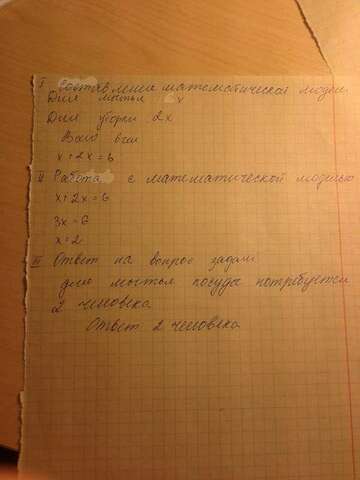 I Составление математической модели
Для мытья x
Для уборки 2x
Всего
x + 2x = 6
II Работа с математической моделью
x + 2x = 6
3x = 6
x = 2
III Ответ на вопрос задачи
для мытья посуды потребуется
2 человека
Ответ 2 человека